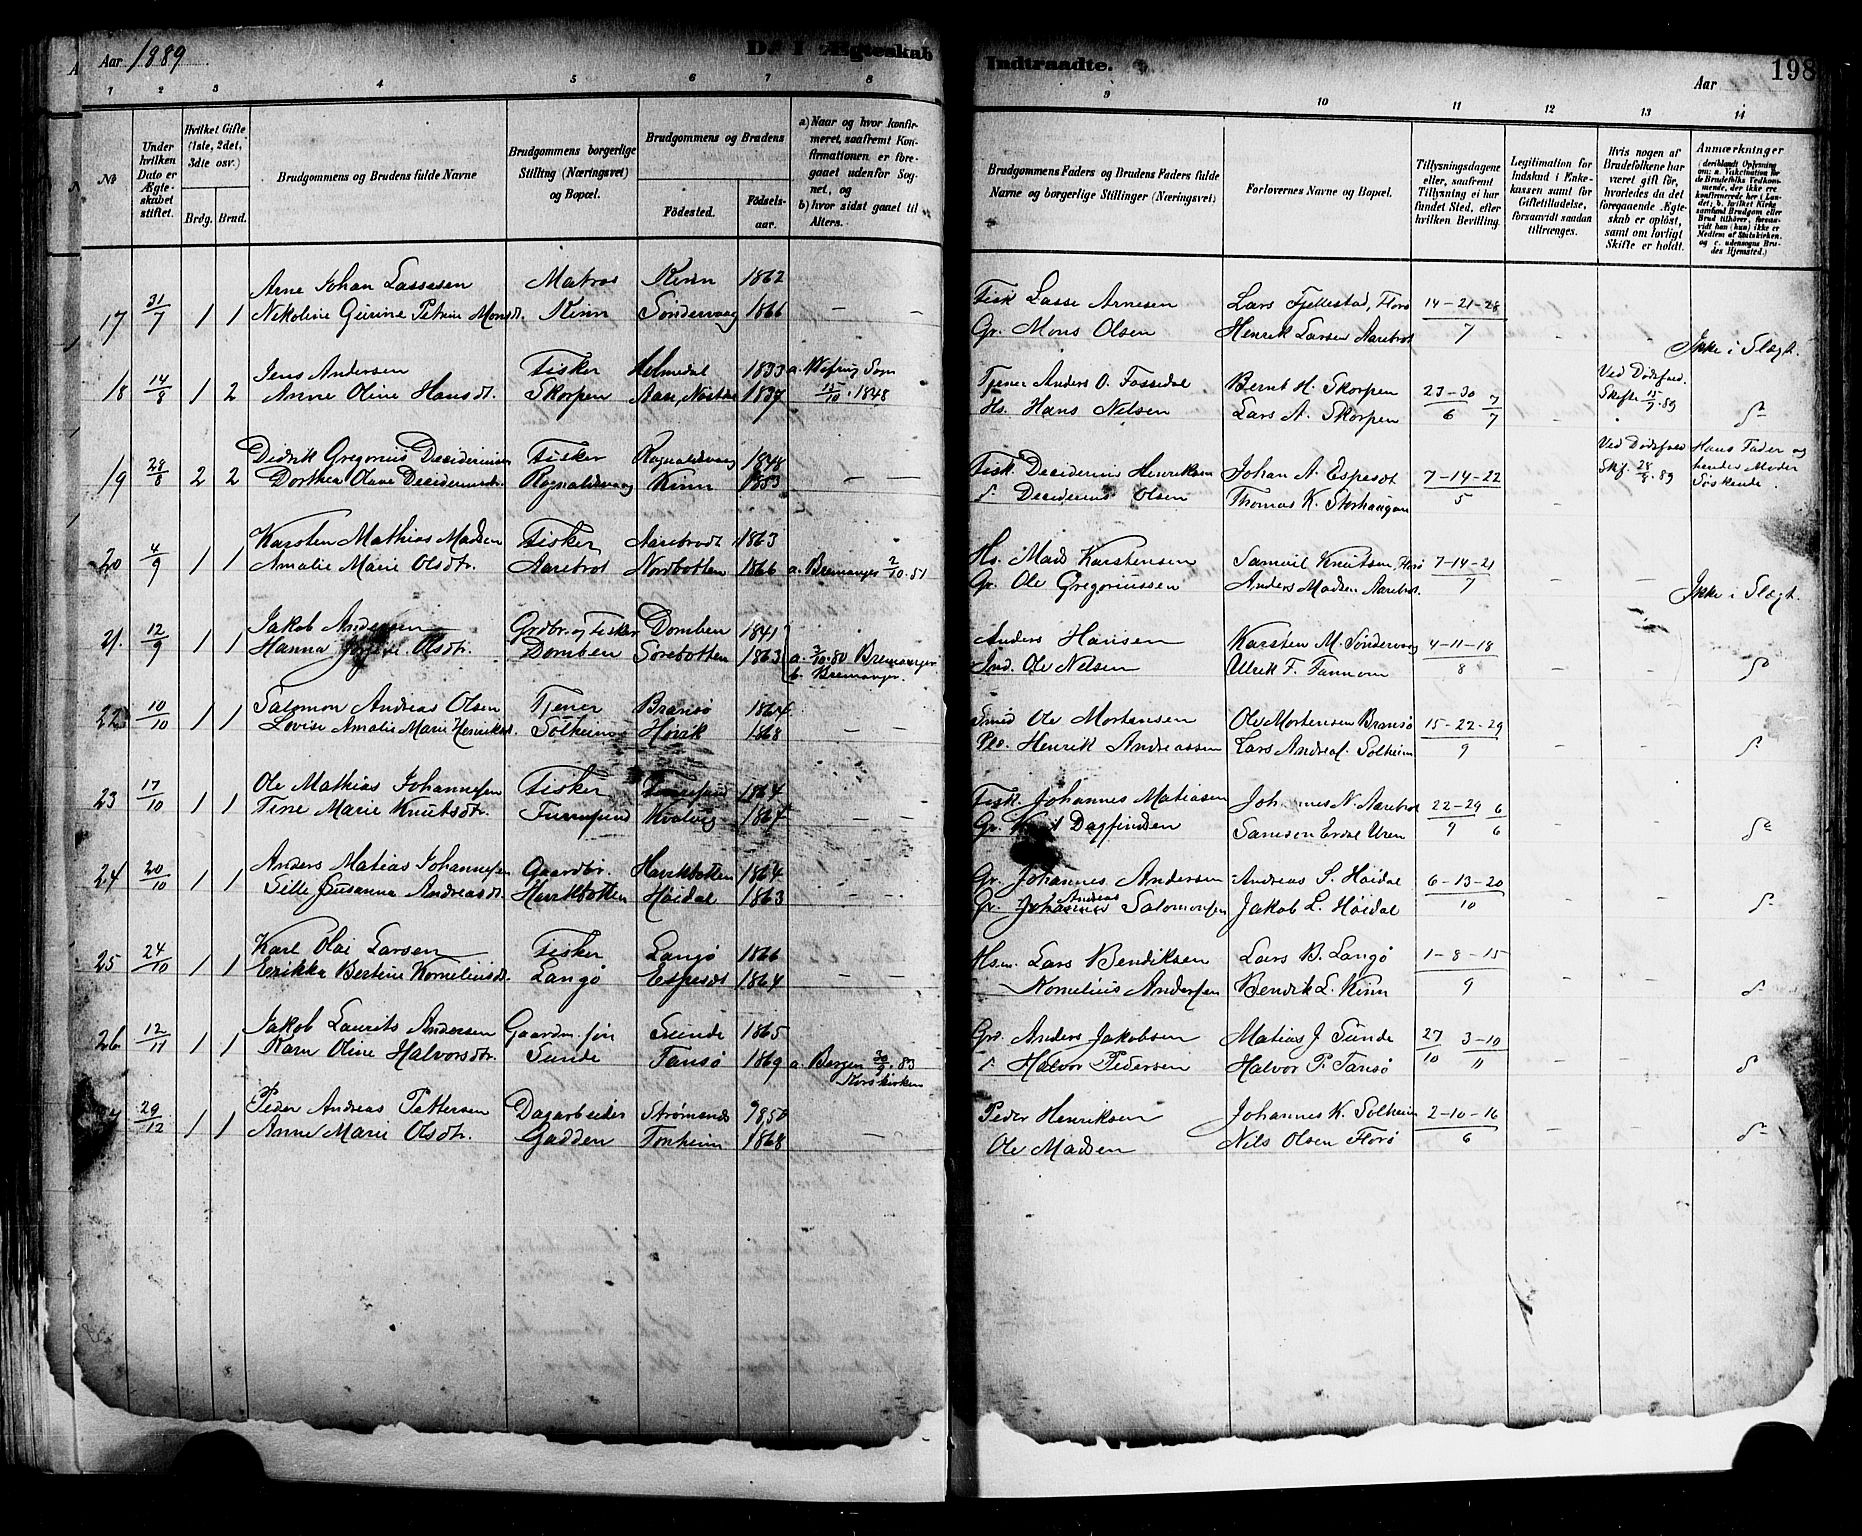 Aar 1889
De i Ægteskab
Indtraadte.
198
Aar
1 2 3 4 5 6 7 8
9 10 11 12 13 14
No
Under hvilken Dato er Ægteskabet stiftet.
Hvilket Gifte (1ste, 2det, 3die osv.)
Brdg. Brud.
Brudgommens og Brudens fulde Navne
Brudgommens borgerlige Stilling (Næringsvei) og Bopæl.
Brudgommens og Brudens
Fødested. Fødselsaar.
a) Naar og hvor konfirmeret, saafremt Konfirmationen er foregaaet udenfor Sognet, og
b) hvor sidst gaaet til Alters.
Brudgommens Faders og Brudens Faders fulde Navne og borgerlige Stillinger (Næringsvei)
Forlovernes Navne og Bopæl.
Tillysningsdagene eller, saafremt Tillysning ei har fundet Sted, efter hvilken Bevilling.
Legitimation for Indskud i Enkekassen samt for Giftetilladelse, forsaavidt saadan tiltrænges.
Hvis nogen af Brudefolkene har været gift før, hvorledes da det foregaaende Ægteskab er opløst, samt om lovligt Skifte er holdt.
Anmærkninger
17 31/7 1 1 Arne Johan Lassesen Matros Kinn 1862 Fisk Lasse Arnesen Lars Fjellestad, Florø 14-21-28
Nikoline Gurine Petrine Monsdt. Kinn Søndervaag 1866 — — Gr. Mons Olsen Henrik Larsen Aarebrot 7 Ikke i Slægt.
18 14/8 1 2 Jens Andersen Fisker Helmedal 1833 a. Vefring Sogn Tjener Anders O. Fossedal Bernt H. Skorpen 23-30 7 Ved Dødsfald.
Anne Oline Hansdt. Skorpen Aan, Nostdal 1837 15/10. 1848 Hs. Hans Nilsen Lars A. Skorpen 6 7 Skifte 15/7.89
19 28/8 2 2 Didrik Gregorius Desideriusen Fisker Rognaldsvaag 1848 Fisk. Desiderius Henriksen Johan A. Espesdt 7-14-22 Ved Dødsfald Hans Fader og
Dorthea Olave Desideriusdt. Rognaldsvaag Kinn 1853 — — Desiderius Olsen Thomas K. Storhaugen 5 Skf. 28/8.89 hendes Moder Søskende.
20 4/9 1 1 Karsten Mathias Madsen Fisker Aarebrodt 1863 Hs. Mads Karstensen Samuel Knutsen, Florø 7-14-21
Amalie Marie Olsdtr. Aarebrot Nordbotten 1866 a. Bremanger 2/10.81 Gr. Ole Gregoriussen Anders Madsen Aarebrot 7 Ikke i Slægt.
21. 12/9 1 1 Jakob Andersen Grdbr. og Fisker Domben 1841 Anders Hansen Karsten M. Søndervaag 4-11-18
Hanna Olsdtr. Domben Sørebotten 1863 a. 3/10.80 Bremanger b. Bremanger. Ind. Ole Nilsen Ulrik F. Tannom 8
22 10/10 1 1 Salomon Andreas Olsen Tjener Bransø 1864 Smed Ole Mortensen Ole Mortensen Bransø 15-22-29
Lovise Amalie Marie Henriksdt. Solheim Hovik 1868 — — Henrik Andreassen Lars Andreas. Solheim 9
23 17/10 1 1 Ole Mathias Johannesen Fisker 1864 Fisk. Johannes Matiasen N. Aarebrot 22-29 6
Tine Marie Knutsdtr. Kvalvig 1864 — — Gr. Dagfindsen Samson Erdal Uren 9 6
24 20/10 1 1 Anders Matias Johannesen Gaardbr. Havikbotten 1864 Gr. Johannes Andersen Andreas S. Høidal 6-13-20
Sille Susanna Andreasdt. Havikbotten Høidal 1863 — — Gr. Johannes Andreas Salomonsen Jakob L. Høidal 10
25 24/10 1 1 Karl Olai Larsen Fisker Langø 1866 Hsm. Lars Bendiksen Lars B. Langø 1-8-15
Erikke Bertine Korneliusdt. Langø Espesdt 1864 — — Kornelius Andersen Bendik L. Kinn 9
26 12/11 1 1 Jakob Laurits Andersen Gaardm. søn Sunde 1865 Gr. Anders Jakobsen Matias J. Sunde 27 3-10
Karn Oline Halvorsdtr. Sunde Tansø 1869 a. Bergen 30/9.83 Korskirken Halvor Pedersen Halvor P. Tansø 10 11
29/12 1 1 Peder Andreas Pettersen Dagarbeider Strømsnes Peder Henriksen Johannes K. Solheim 2-10-16
Anne Marie Olsdtr. Gadden Tonheim 1868 — — Ole Madsen Nils Olsen Florø 6